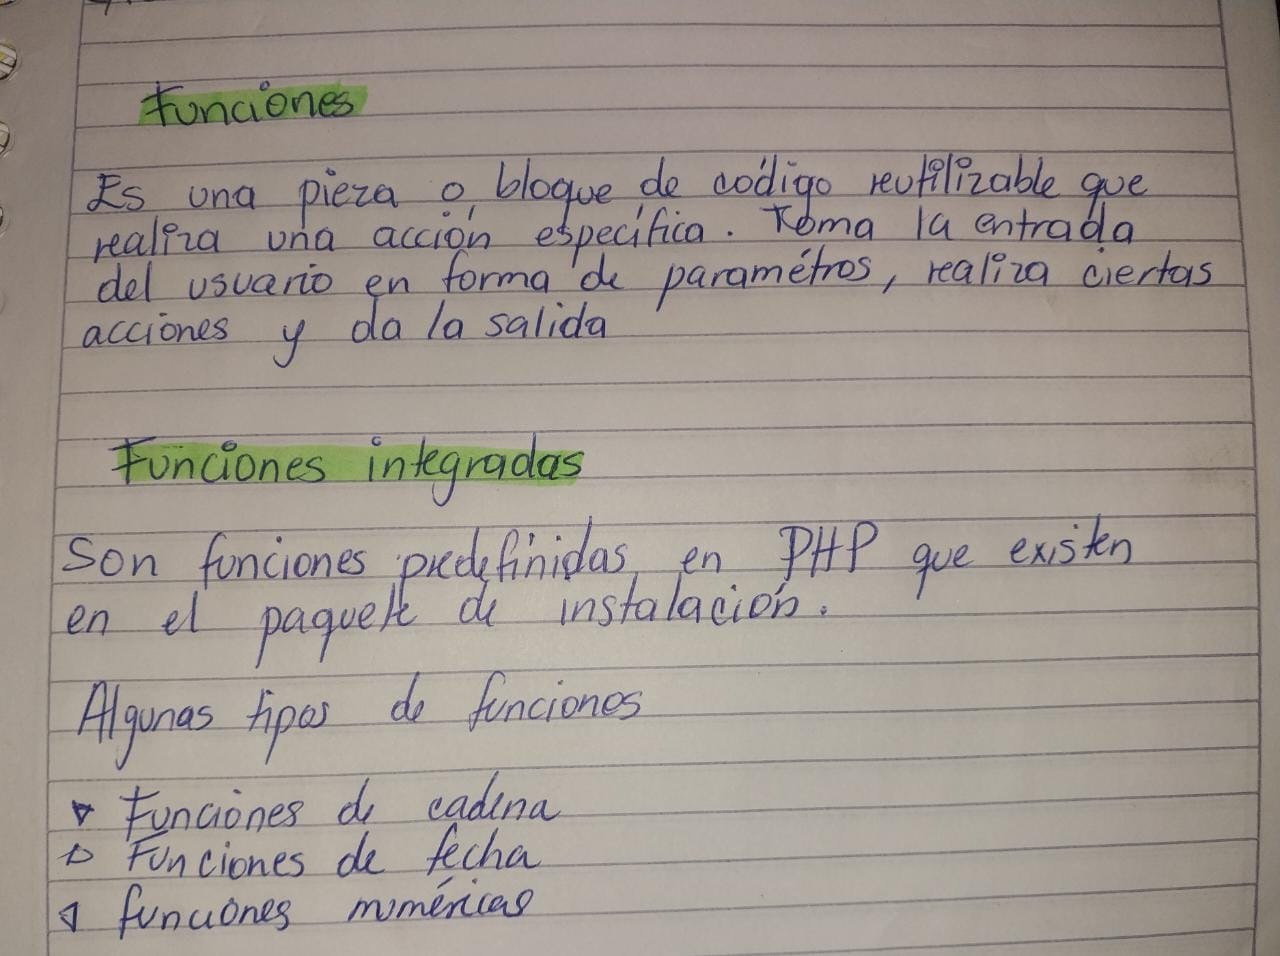 Funciones
Es una pieza o bloque de código reutilizable que
realiza una acción específica. Toma la entrada
del usuario en forma de paramétros, realiza ciertas
acciones y da la salida
Funciones integradas
Son funciones predefinidas en PHP que existen
en el paquete de instalación.
Algunas tipos de funciones
Funciones de cadena
Funciones de fecha
funciones numéricas